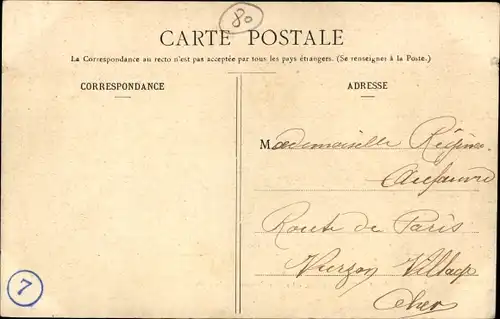 80
CARTE POSTALE
La Correspondance au recto n'est pas acceptée par tous les pays étrangers. (Se renseigner à la Poste.)
CORRESPONDANCE
ADRESSE
Mademoiselle Régine
Route de Paris
Vierzon Village
Cher
7